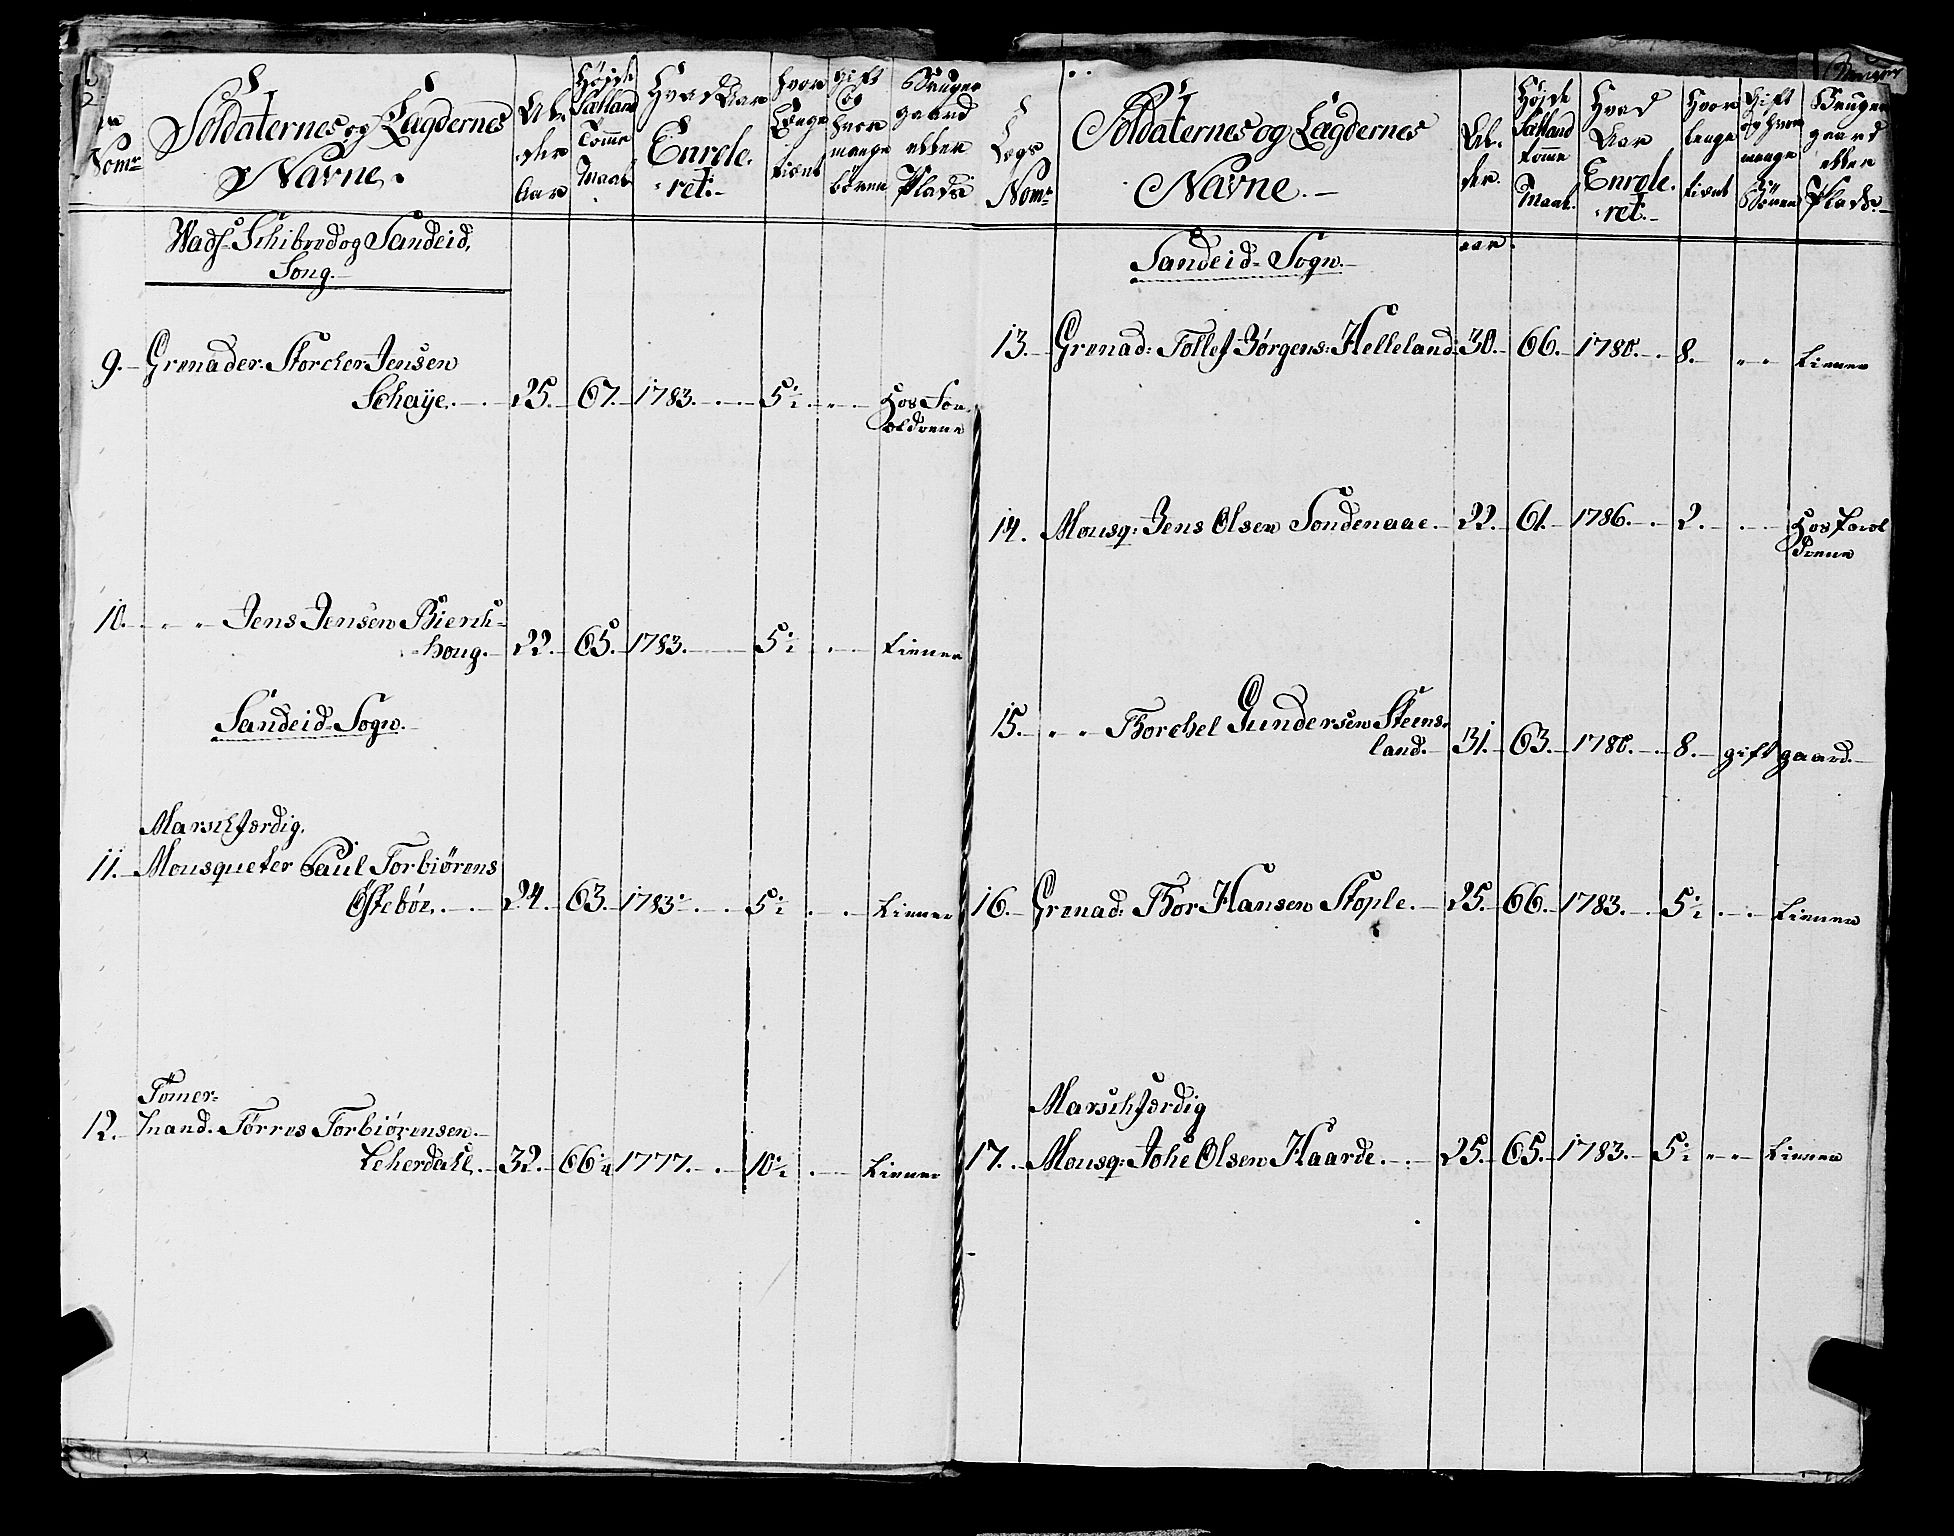 Nomr
Soldaternes og Lægdernes
Navne.
Al-
der
Aar
Højde
Sælland
Tomme
Maal
Hvad Aar
Enrole-
ret.
hvor
Længe
tient
gift
og
hvor
mange
børen
Bruger
gaard
eller
Plads
Sandeid
Song.
9. Grenader: Storcher Jensen
Schaije. 25. 67. 1783. 5½
hos For
ældrene
10. " " Jens Jensen Bierch-
houg. 22. 65. 1783. 5½ tienner
Sandeid Sogn.
Marschfærdig.
11. Mousqueter Paul Torbiørens
Østebøe. 24. 63. 1783. 5½ tienner
Tømer-
12. mand. Torres Torbiørensen
Leherdahl. 32. 66¼ 1777. 10½ tienner
Lægs
Nomr
Soldaternes og Lægdernes
Navne.
Al-
der.
aar
Højde
Sælland
tomme
Maal.
Hvad
Aar
Enrole-
ret.
Hvor
længe
tient
Gift
og hvor
mange
Børen
Bruger
gaard
eller
Plads.
Sandeid Sogn.
13. Grenad: Tollef Børgens: Helleland 30. 66. 1780. 8. " " tienner
14. Mousq: Jens Olsen Sondenaae. 22. 61. 1786. 2.
15. " " Thorchel Gundersen Steens-
land. 31. 63. 1780. 8. gift gaard.
16. Grenad: Thor Hansen Stople. 25. 66. 1783. 5½ tienner
Marschfærdig
17. Mousq: Johe Olsen Haarde. 25. 65. 1783. 5½ " " tienner